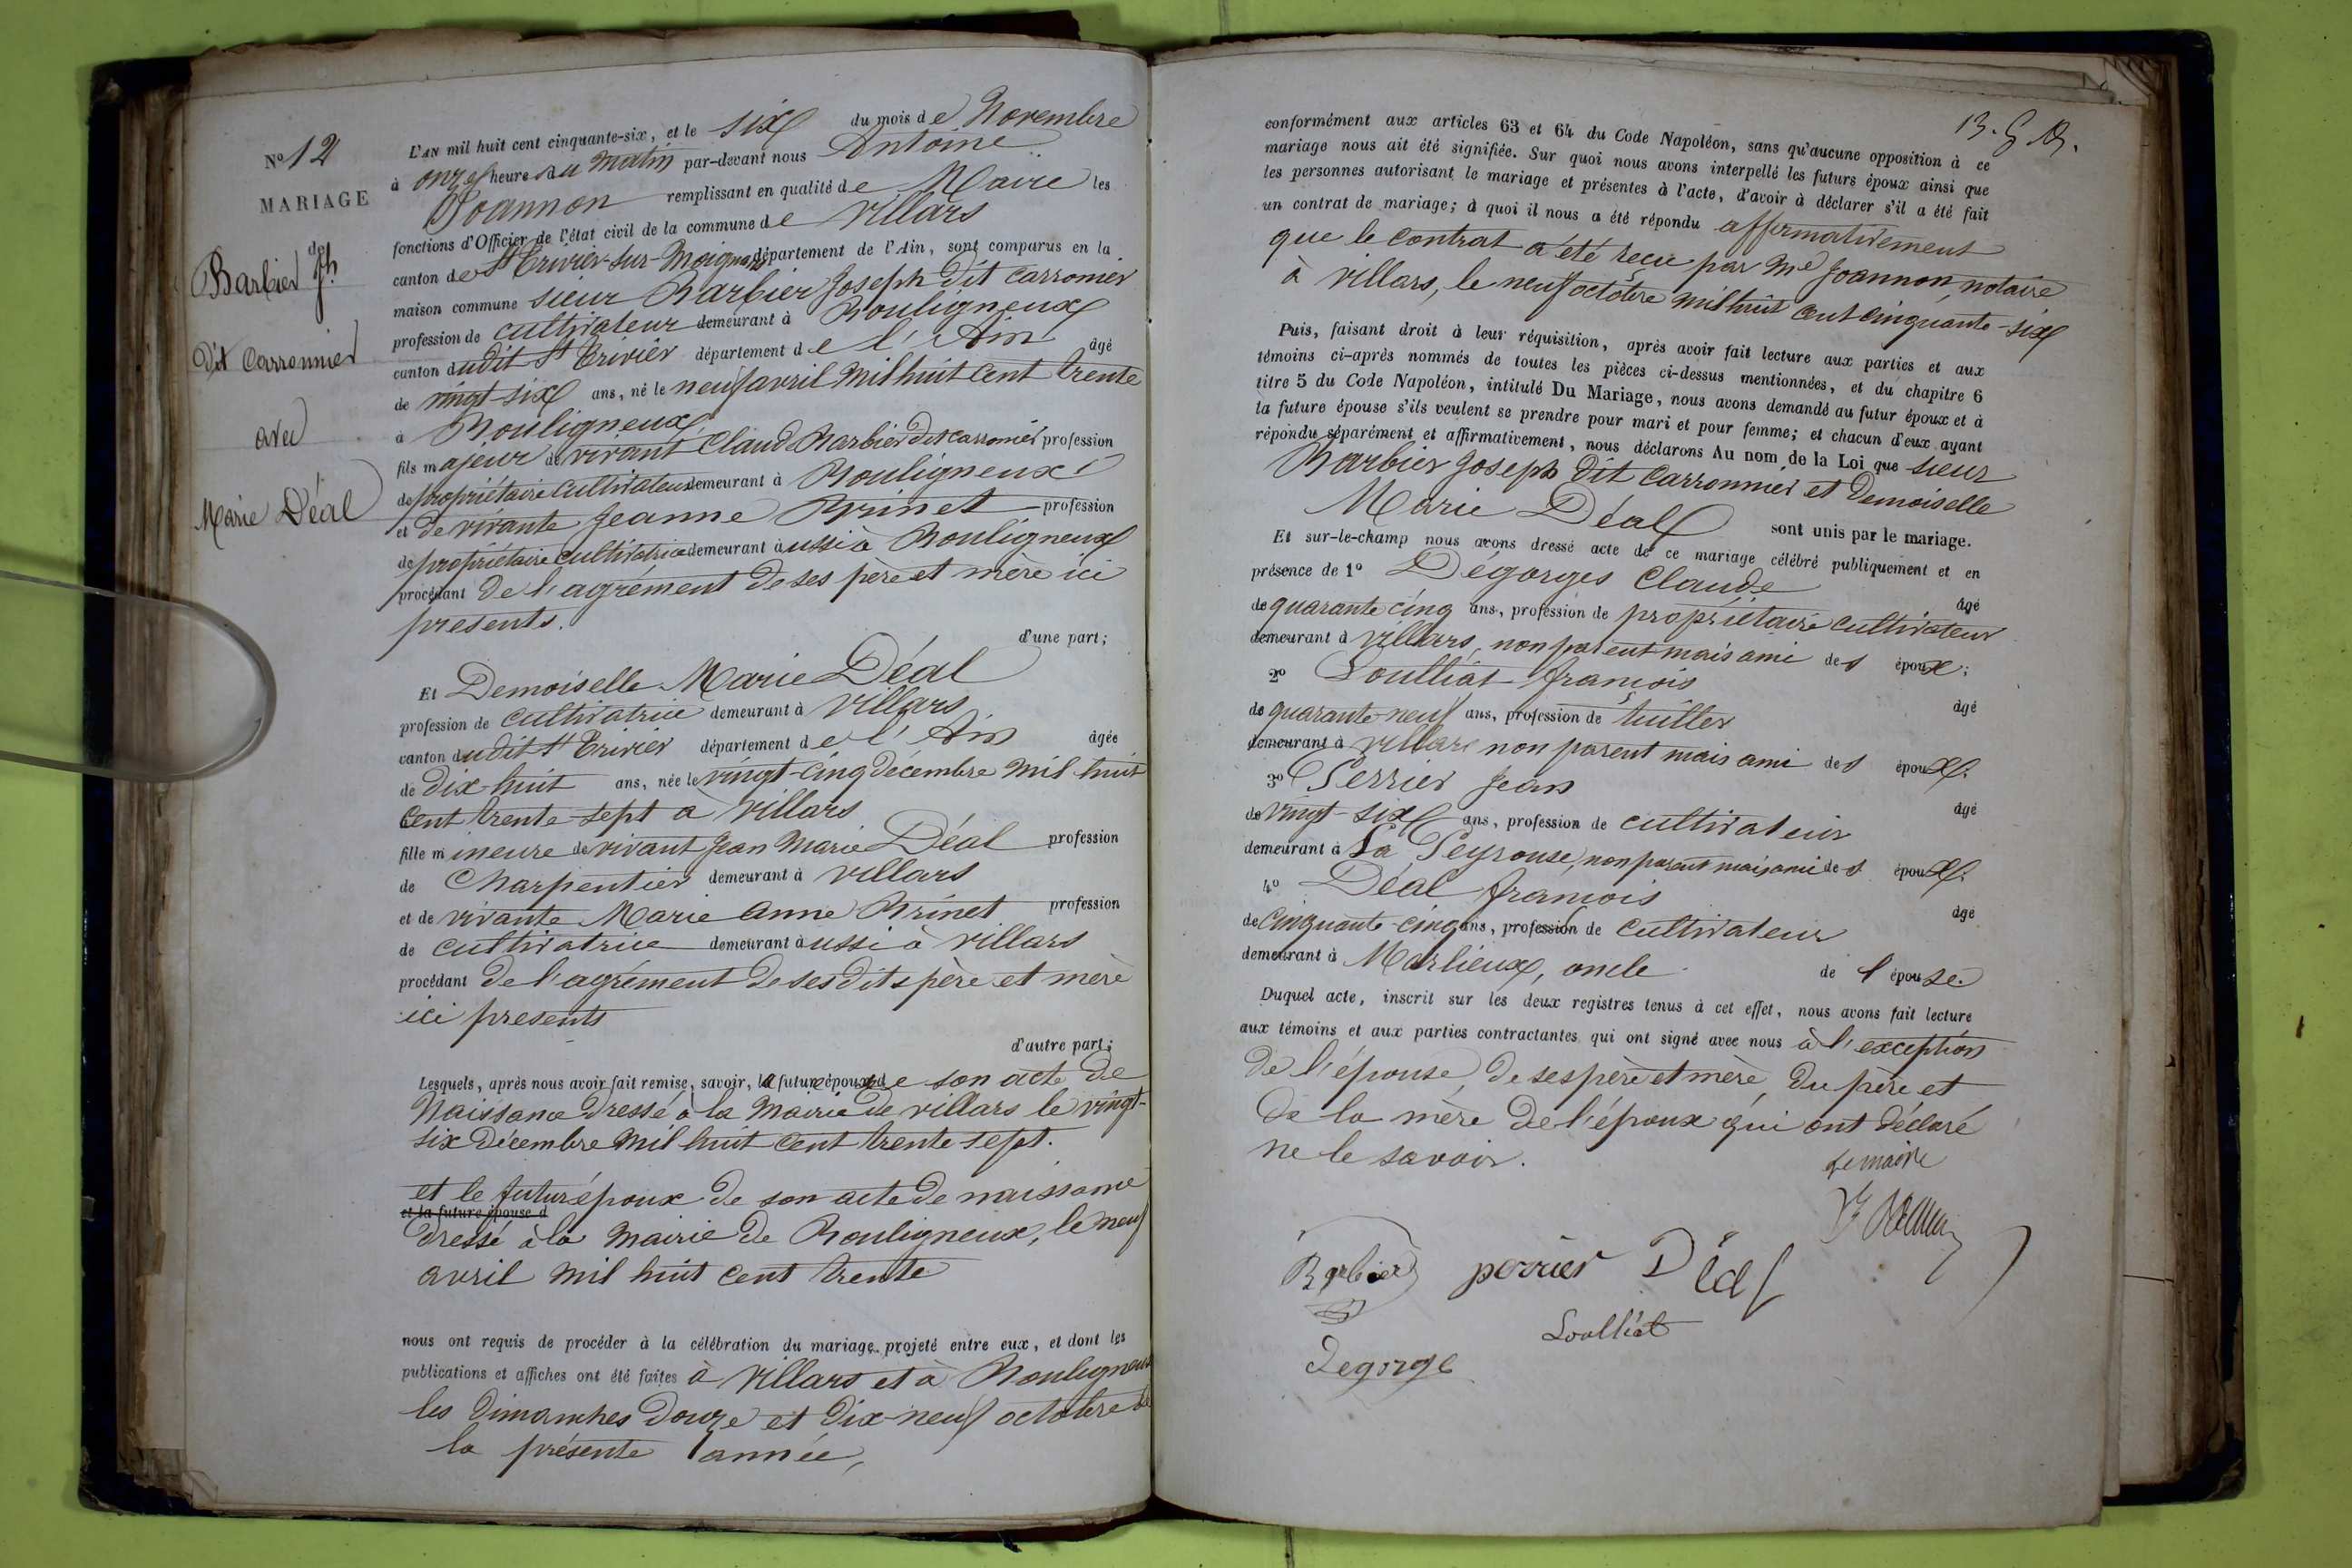 N° 12
MARIAGE
de
Barbier Jh
dit Carronnier
avec
Marie Déal
L'AN mil huit cent cinquante-six, et le six du mois de Novembre
à onze heures du matin par-devant nous Antoine
Joannon remplissant en qualité de Maire les
fonctions d'Officier de l'état civil de la commune de Villars
canton de St Trivier-sur-Moignans département de l'Ain, sont comparus en la
maison commune sieur Barbier Joseph dit Carronier
profession de cultivateur demeurant à Bouligneux
canton dudit St Trivier département de l'Ain âgé
de vingt-six ans, né le neuf avril mil huit cent trente
à Bouligneux
fils majeur de vivant Claude Barbier dit Carronier profession
de propriétaire cultivateur demeurant à Bouligneux
et de vivante Jeanne Brinet profession
de propriétaire cultivatrice demeurant aussi à Bouligneux
procédant de l'agrément de ses père et mère ici
présents.
d'une part;
Et Demoiselle Marie Déal
profession de cultivatrice demeurant à Villars
canton dudit St Trivier département de l'Ain âgée
de dix-huit ans, née le vingt-cinq décembre mil huit
cent trente-sept à Villars
fille mineure de vivant Jean Marie Déal profession
de Charpentier demeurant à Villars
et de vivante Marie Anne Brinet profession
de cultivatrice demeurant aussi à Villars
procédant de l'agrément de ses dits père et mère
ici présents
d'autre part;
Lesquels, après nous avoir fait remise, savoir, la future épouse de son acte de
Naissance dressé à la Mairie de Villars le vingt-
six décembre mil huit cent trente sept.
et le futur époux de son acte de naissance
et la future épouse d
dressé à la Mairie de Bouligneux, le neuf
avril mil huit cent trente
nous ont requis de procéder à la célébration du mariage projeté entre eux, et dont les
publications et affiches ont été faites à Villars et à Bouligneux
les dimanches douze et dix-neuf octobre de
la présente année,
conformément aux articles 63 et 64 du Code Napoléon, sans qu'aucune opposition à ce
mariage nous ait été signifiée. Sur quoi nous avons interpellé les futurs époux ainsi que
les personnes autorisant le mariage et présentes à l'acte, d'avoir à déclarer s'il a été fait
un contrat de mariage; à quoi il nous a été répondu affirmativement
que le contrat a été reçu par Me Joannon, notaire
à Villars, le neuf octobre mil huit cent cinquante-six
Puis, faisant droit à leur réquisition, après avoir fait lecture aux parties et aux
témoins ci-après nommés de toutes les pièces ci-dessus mentionnées, et du chapitre 6
titre 5 du Code Napoléon, intitulé Du Mariage, nous avons demandé au futur époux et à
la future épouse s'ils veulent se prendre pour mari et pour femme; et chacun d'eux ayant
répondu séparément et affirmativement, nous déclarons Au nom de la Loi que sieur
Barbier Joseph dit Carronnier et Demoiselle
Marie Déal sont unis par le mariage.
Et sur-le-champ nous avons dressé acte de ce mariage célébré publiquement et en
présence de 1° Degorges Claude âgé
de quarante cinq ans, profession de propriétaire cultivateur
demeurant à Villars, non parent mais ami des époux;
2° Soulliat françois âgé
de quarante-neuf ans, profession de tuilier
demeurant à Villars non parent mais ami des époux.
3° Perrier Jean âgé
de vingt-six ans, profession de cultivateur
demeurant à La Peyrouse, non parent mais ami des époux.
4° Déal françois âgé
de cinquante-cinq ans, profession de cultivateur
demeurant à Marlieux, oncle de l'épouse.
Duquel acte, inscrit sur les deux registres tenus à cet effet, nous avons fait lecture
aux témoins et aux parties contractantes qui ont signé avec nous à l'exception
de l'épouse, de ses père et mère, du père et
de la mère de l'époux qui ont déclaré
ne le savoir.
Le maire
Barbier perrier Déal
Soulliat
Degorge